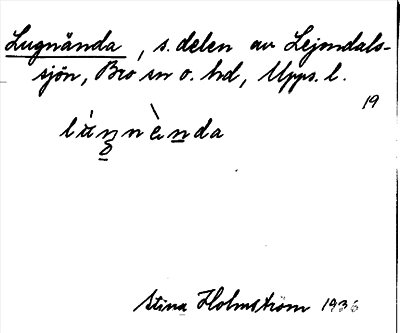 Lugnända, s. delen av Lejondals-
sjön, Bro sn o. hd, Upps. l.
19
lùŋnènda
Stina Holmström 1936